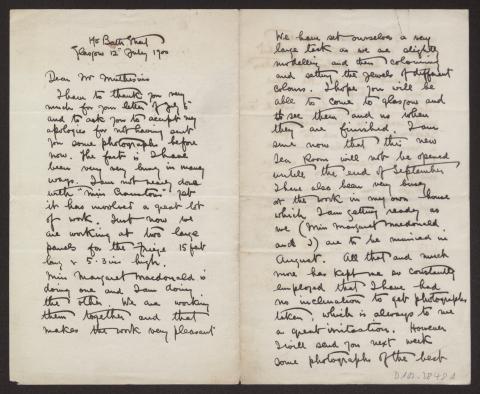 140 Bath Street
Glasgow 12th July 1900
Dear Mr Muthesius
I have to thank you very
much for your letter of July 5th
and to ask you to accept my
apologies for not having sent
you some photographs before
now. The fact is I have
been very very busy in many
ways. I am not nearly done
with "Miss Cranston" yet
it has involved a great lot
of work. Just now we
are working at two large
panels for the frieze 15 feet
long x 5.3 ins high.
Miss Margaret Macdonald is
doing one and I am doing
the other. We are working
them together and that
makes the work very pleasant
We have set ourselves a very
large task as we are slightly
modelling and then colouring
and setting the jewels of different
colours. I hope you will be
able to come to Glasgow and
to see them and us when
they are finished. I am
sure now that this new
Tea Room will not be opened
untill the end of September
I have also been very busy
at the work in my own house
which I am getting ready as
we (Miss Margaret Macdonald
and I) are to be married in
August. All that and much
more has kept me so constantly
employed that I have had
no inclination to get photographs
taken, which is always to me
a great irritation. However
I will send you next week
some photographs of the best